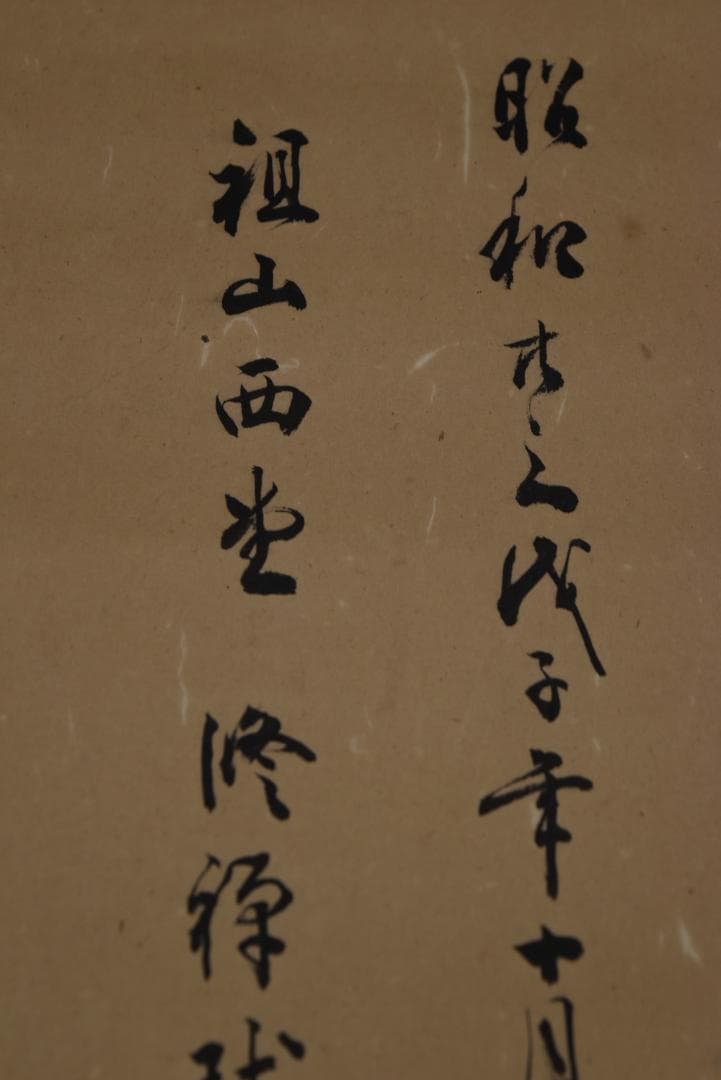 昭和廿三戊子年十月
祖山西堂 修禅